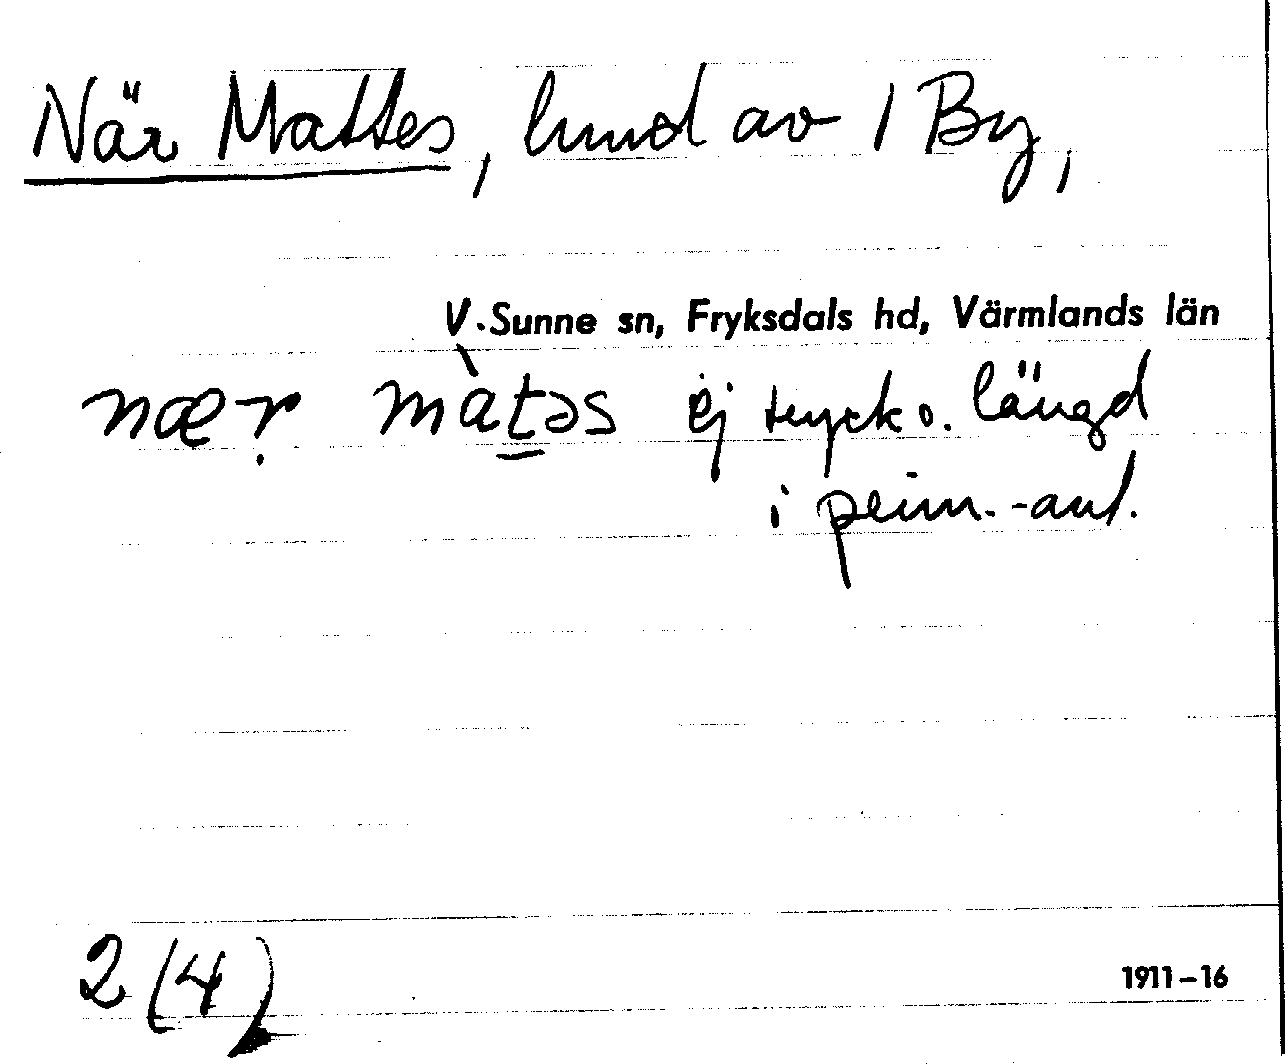 När Mattes, lund av 1 By,
V. Sunne sn, Fryksdals hd, Värmlands län
næṛ màt̲əs ej tryck o. längd
i prim.-ant.
2 (4)
1911-16